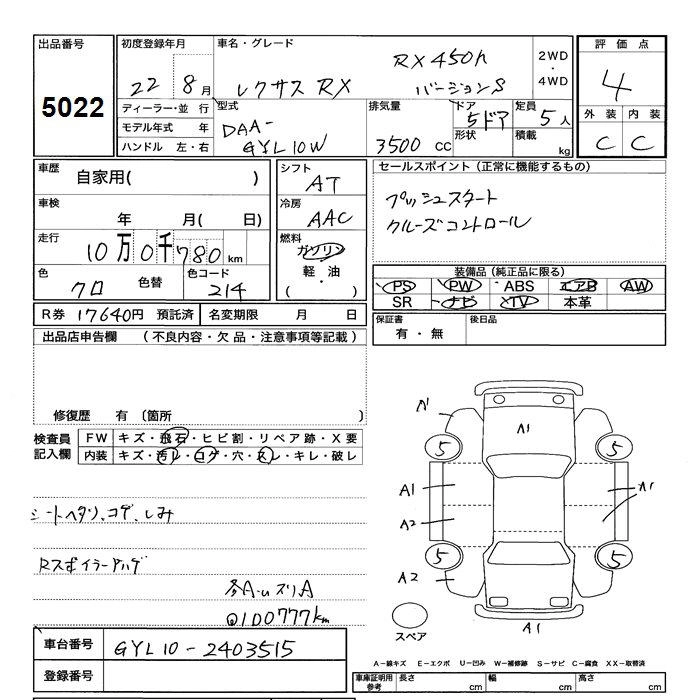 出品番号 5022
初度登録年月 22 8月
車名・グレード レクサス RX RX450h バージョンS
2WD・4WD
評価点 4
外装 C 内装 C
ディーラー・並行
モデル年式 年
ハンドル 左・右
型式 DAA-GYL10W
排気量 3500 CC
ドア形状 5ドア
定員 5人
積載 kg
車歴 自家用( )
車検 年 月( 日)
走行 10万0千780km
色 クロ 色替 色コード 214
シフト AT
冷房 AAC
燃料 ガソリン 軽・油 ( )
セールスポイント(正常に機能するもの)
プッシュスタート
クルーズコントロール
装備品(純正品に限る)
PS PW ABS エアB AW
SR ナビ TV 本革
R券 17640円 預託済 名変期限 月 日
保証書 有・無 後日品
出品店申告欄 (不良内容・欠品・注意事項等記載)
修復歴 有(箇所
検査員記入欄
FW キズ・飛石・ヒビ割・リペア跡・X要
内装 キズ・汚レ・コゲ・穴・スレ・キレ・破レ
シートヘタリ、コゲ、しみ
Rスポイラーハゲ
A・Uズリ A
100777km
A1
5 5
A1 A1
A2
5 5
A2
A1
スペア
車台番号 GYL10-2403515
登録番号
A-線キズ E-エクボ U-凹み W-補修跡 S-サビ C-腐食 XX-取替済
車庫証明用参考 長さ cm 幅 cm 高さ cm